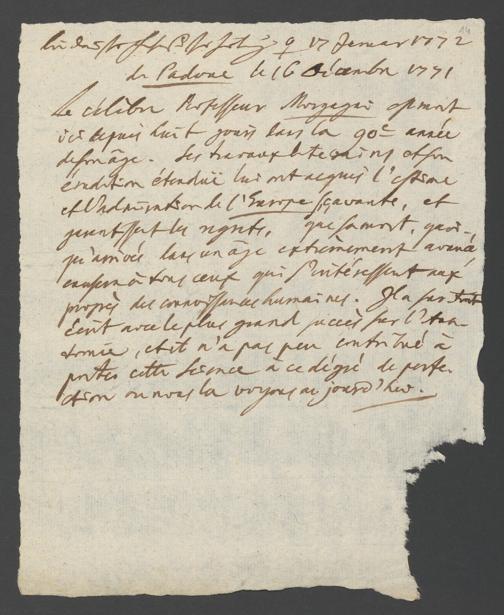 14
17 Januar 1772
de Padoue le 16 Décembre 1771
Le célèbre Professeur Morgagni est mort
ici depuis huit jours dans la 90e année
de son âge. Ses travaux et son
érudition étenduë lui ont acquis l'estime
et l'admiration de l'Europe sçavante, et
garantissent les regrets, que sa mort, quoi-
qu'arrivée dans un âge extrèmement avancé
causera à tous ceux qui s'intéressent aux
progrès des connoissances humaines. Il a sur tout
écrit avec le plus grand succès sur l'Ana-
tomie, et il n'a pas peu contribué à
porter cette science à ce dégré de perfe-
ction où nous la voyons aujourd'hui.